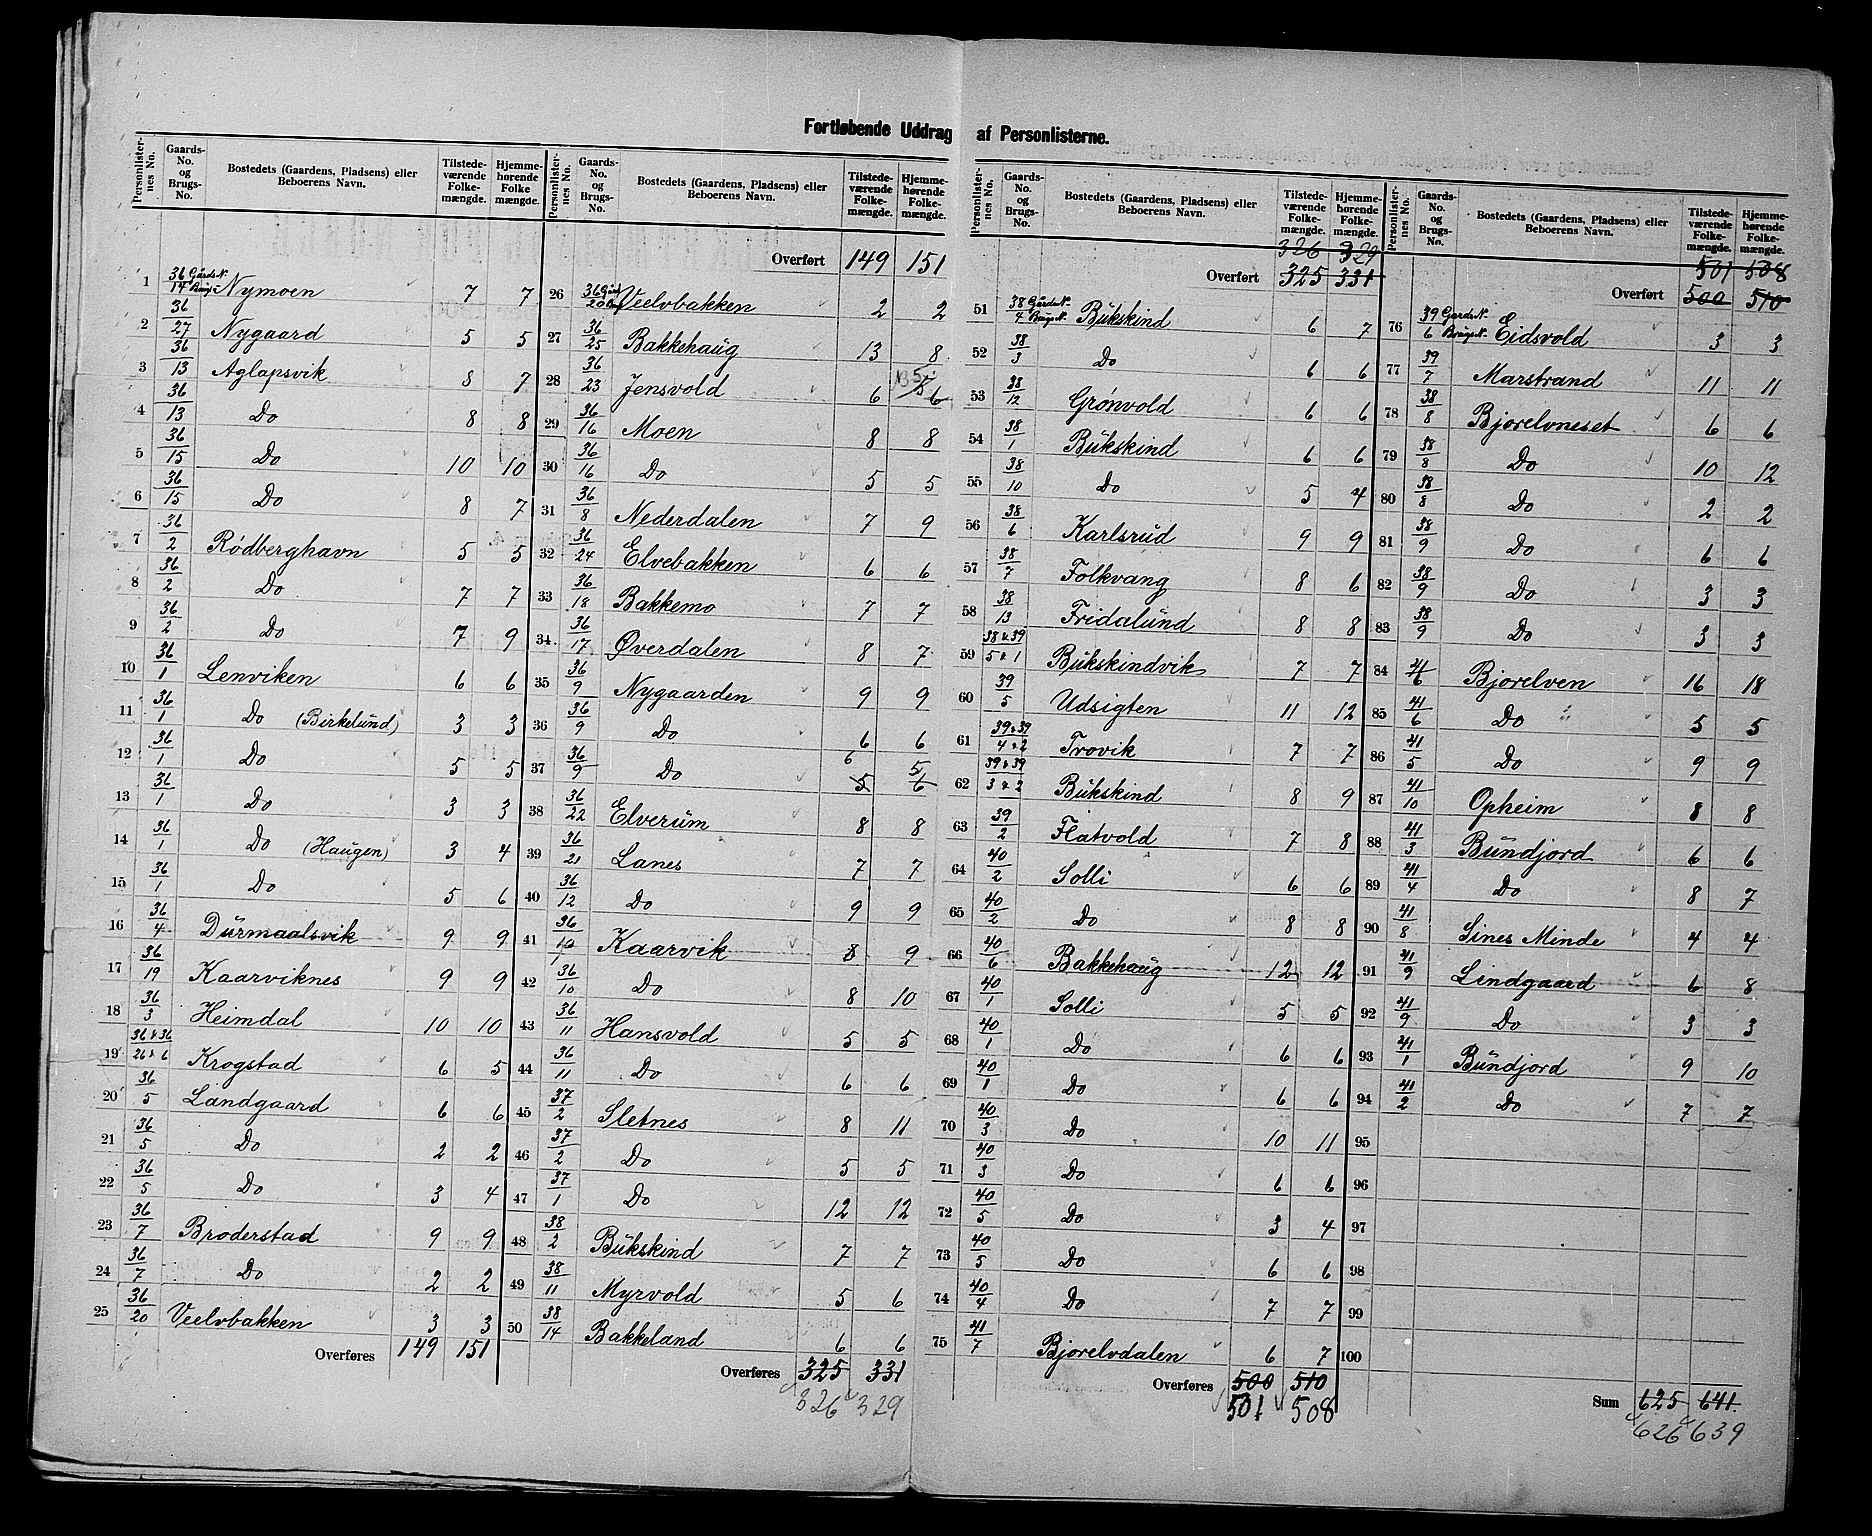 Fortløbende Uddrag af Personlisterne.
Personlister-nes No. | Gaards-No. og Brugs-No. | Bostedets (Gaardens, Pladsens) eller Beboerens Navn. | Tilstede-værende Folke-mængde. | Hjemme-hørende Folke mængde.
1 | 36 Gårds N. / 14 Brugs - | Nymoen | 7 | 7
2 | 36/27 | Nygaard | 5 | 5
3 | 36/13 | Aglapsvik | 8 | 7
4 | 36/13 | Do | 8 | 8
5 | 36/15 | Do | 10 | 10
6 | 36/15 | Do | 8 | 7
7 | 36/2 | Rødberghavn | 5 | 5
8 | 36/2 | Do | 7 | 7
9 | 36/2 | Do | 7 | 9
10 | 36/1 | Lenviken | 6 | 6
11 | 36/1 | Do (Birkelund) | 3 | 3
12 | 36/1 | Do | 5 | 5
13 | 36/1 | Do | 3 | 3
14 | 36/1 | Do (Haugen) | 3 | 4
15 | 36/1 | Do | 5 | 6
16 | 36/4 | Durmaalsvik | 9 | 9
17 | 36/19 | Kaarviknes | 9 | 9
18 | 36/3 | Heimdal | 10 | 10
19 | 36 & 36 / 26 & 6 | Krogstad | 6 | 5
20 | 36/5 | Landgaard | 6 | 6
21 | 36/5 | Do | 2 | 2
22 | 36/5 | Do | 3 | 4
23 | 36/7 | Broderstad | 9 | 9
24 | 36/7 | Do | 2 | 2
25 | 36/20 | Veelvbakken | 3 | 3
Overføres 149 151
Personlister-nes No. | Gaards-No. og Brugs-No. | Bostedets (Gaardens, Pladsens) eller Beboerens Navn. | Tilstede-værende Folke-mængde. | Hjemme-hørende Folke-mængde.
Overført 149 151
26 | 36 Gårds / 20 | Veelvbakken | 2 | 2
27 | 36/25 | Bakkehaug | 13 | 8
28 | 36/23 | Jensvold | 6 | 6
29 | 36/16 | Moen | 8 | 8
30 | 36/16 | Do | 5 | 5
31 | 36/8 | Nederdalen | 7 | 9
32 | 36/24 | Elvebakken | 6 | 6
33 | 36/18 | Bakkemo | 7 | 7
34 | 36/17 | Øverdalen | 8 | 7
35 | 36/9 | Nygaarden | 9 | 9
36 | 36/9 | Do | 6 | 6
37 | 36/9 | Do | 6 5 | 5 6
38 | 36/22 | Elverum | 8 | 8
39 | 36/21 | Lanes | 7 | 7
40 | 36/12 | Do | 9 | 9
41 | 36/10 | Kaarvik | 8 | 9
42 | 36/10 | Do | 8 | 10
43 | 36/11 | Hansvold | 5 | 5
44 | 36/11 | Do | 6 | 6
45 | 37/2 | Sletnes | 8 | 11
46 | 37/2 | Do | 5 | 5
47 | 37/1 | Do | 12 | 12
48 | 38/2 | Bukskind | 7 | 7
49 | 38/11 | Myrvold | 5 | 6
50 | 38/14 | Bakkeland | 6 | 6
Overføres 325 331
326 329
Personlister-nes No. | Gaards-No. og Brugs-No. | Bostedets (Gaardens, Pladsens) eller Beboerens Navn. | Tilstede-værende Folke-mængde. | Hjemme-hørende Folke-mængde.
326 329
Overført 325 331
51 | 38 Gårds N. / 4 Brugs N. | Bukskind | 6 | 7
52 | 38/3 | Do | 6 | 6
53 | 38/12 | Grønvold | 6 | 6
54 | 38/1 | Bukskind | 6 | 6
55 | 38/10 | Do | 5 | 4
56 | 38/6 | Karlsrud | 9 | 9
57 | 38/7 | Folkvang | 8 | 6
58 | 38/13 | Fridalund | 8 | 8
59 | 38 & 39 / 5 & 1 | Bukskindvik | 7 | 7
60 | 39/5 | Udsigten | 11 | 12
61 | 39 & 39 / 4 & 2 | Trovik | 7 | 7
62 | 39 & 39 / 3 & 2 | Bukskind | 8 | 9
63 | 39/2 | Flatvold | 7 | 8
64 | 40/2 | Solli | 6 | 6
65 | 40/2 | Do | 8 | 8
66 | 40/6 | Bakkehaug | 12 | 12
67 | 40/1 | Solli | 5 | 5
68 | 40/1 | Do | 6 | 6
69 | 40/1 | Do | 6 | 6
70 | 40/3 | Do | 10 | 11
71 | 40/3 | Do | 6 | 6
72 | 40/5 | Do | 3 | 4
73 | 40/5 | Do | 6 | 6
74 | 40/4 | Do | 7 | 7
75 | 41/7 | Bjorelvdalen | 6 | 7
Overføres 500 510
501 508
Personlister-nes No. | Gaards-No. og Brugs-No. | Bostedets (Gaardens, Pladsens) eller Beboerens Navn. | Tilstede-værende Folke-mængde. | Hjemme-hørende Folke-mængde.
501 508
Overført 500 510
76 | 39 Gårds N. / 6 Brugs N. | Eidsvold | 3 | 3
77 | 39/7 | Marstrand | 11 | 11
78 | 38/8 | Bjorelvneset | 6 | 6
79 | 38/8 | Do | 10 | 12
80 | 38/8 | Do | 2 | 2
81 | 38/9 | Do | 6 | 6
82 | 38/9 | Do | 3 | 3
83 | 38/9 | Do | 3 | 3
84 | 41/6 | Bjorelven | 16 | 18
85 | 41/6 | Do | 5 | 5
86 | 41/5 | Do | 9 | 9
87 | 41/10 | Opheim | 8 | 8
88 | 41/3 | Bundjord | 6 | 6
89 | 41/4 | Do | 8 | 7
90 | 41/8 | Sines Minde | 4 | 4
91 | 41/9 | Lindgaard | 6 | 8
92 | 41/9 | Do | 3 | 3
93 | 41/1 | Bundjord | 9 | 10
94 | 41/2 | Do | 7 | 7
95
96
97
98
99
100
Sum 625 641.
626 639